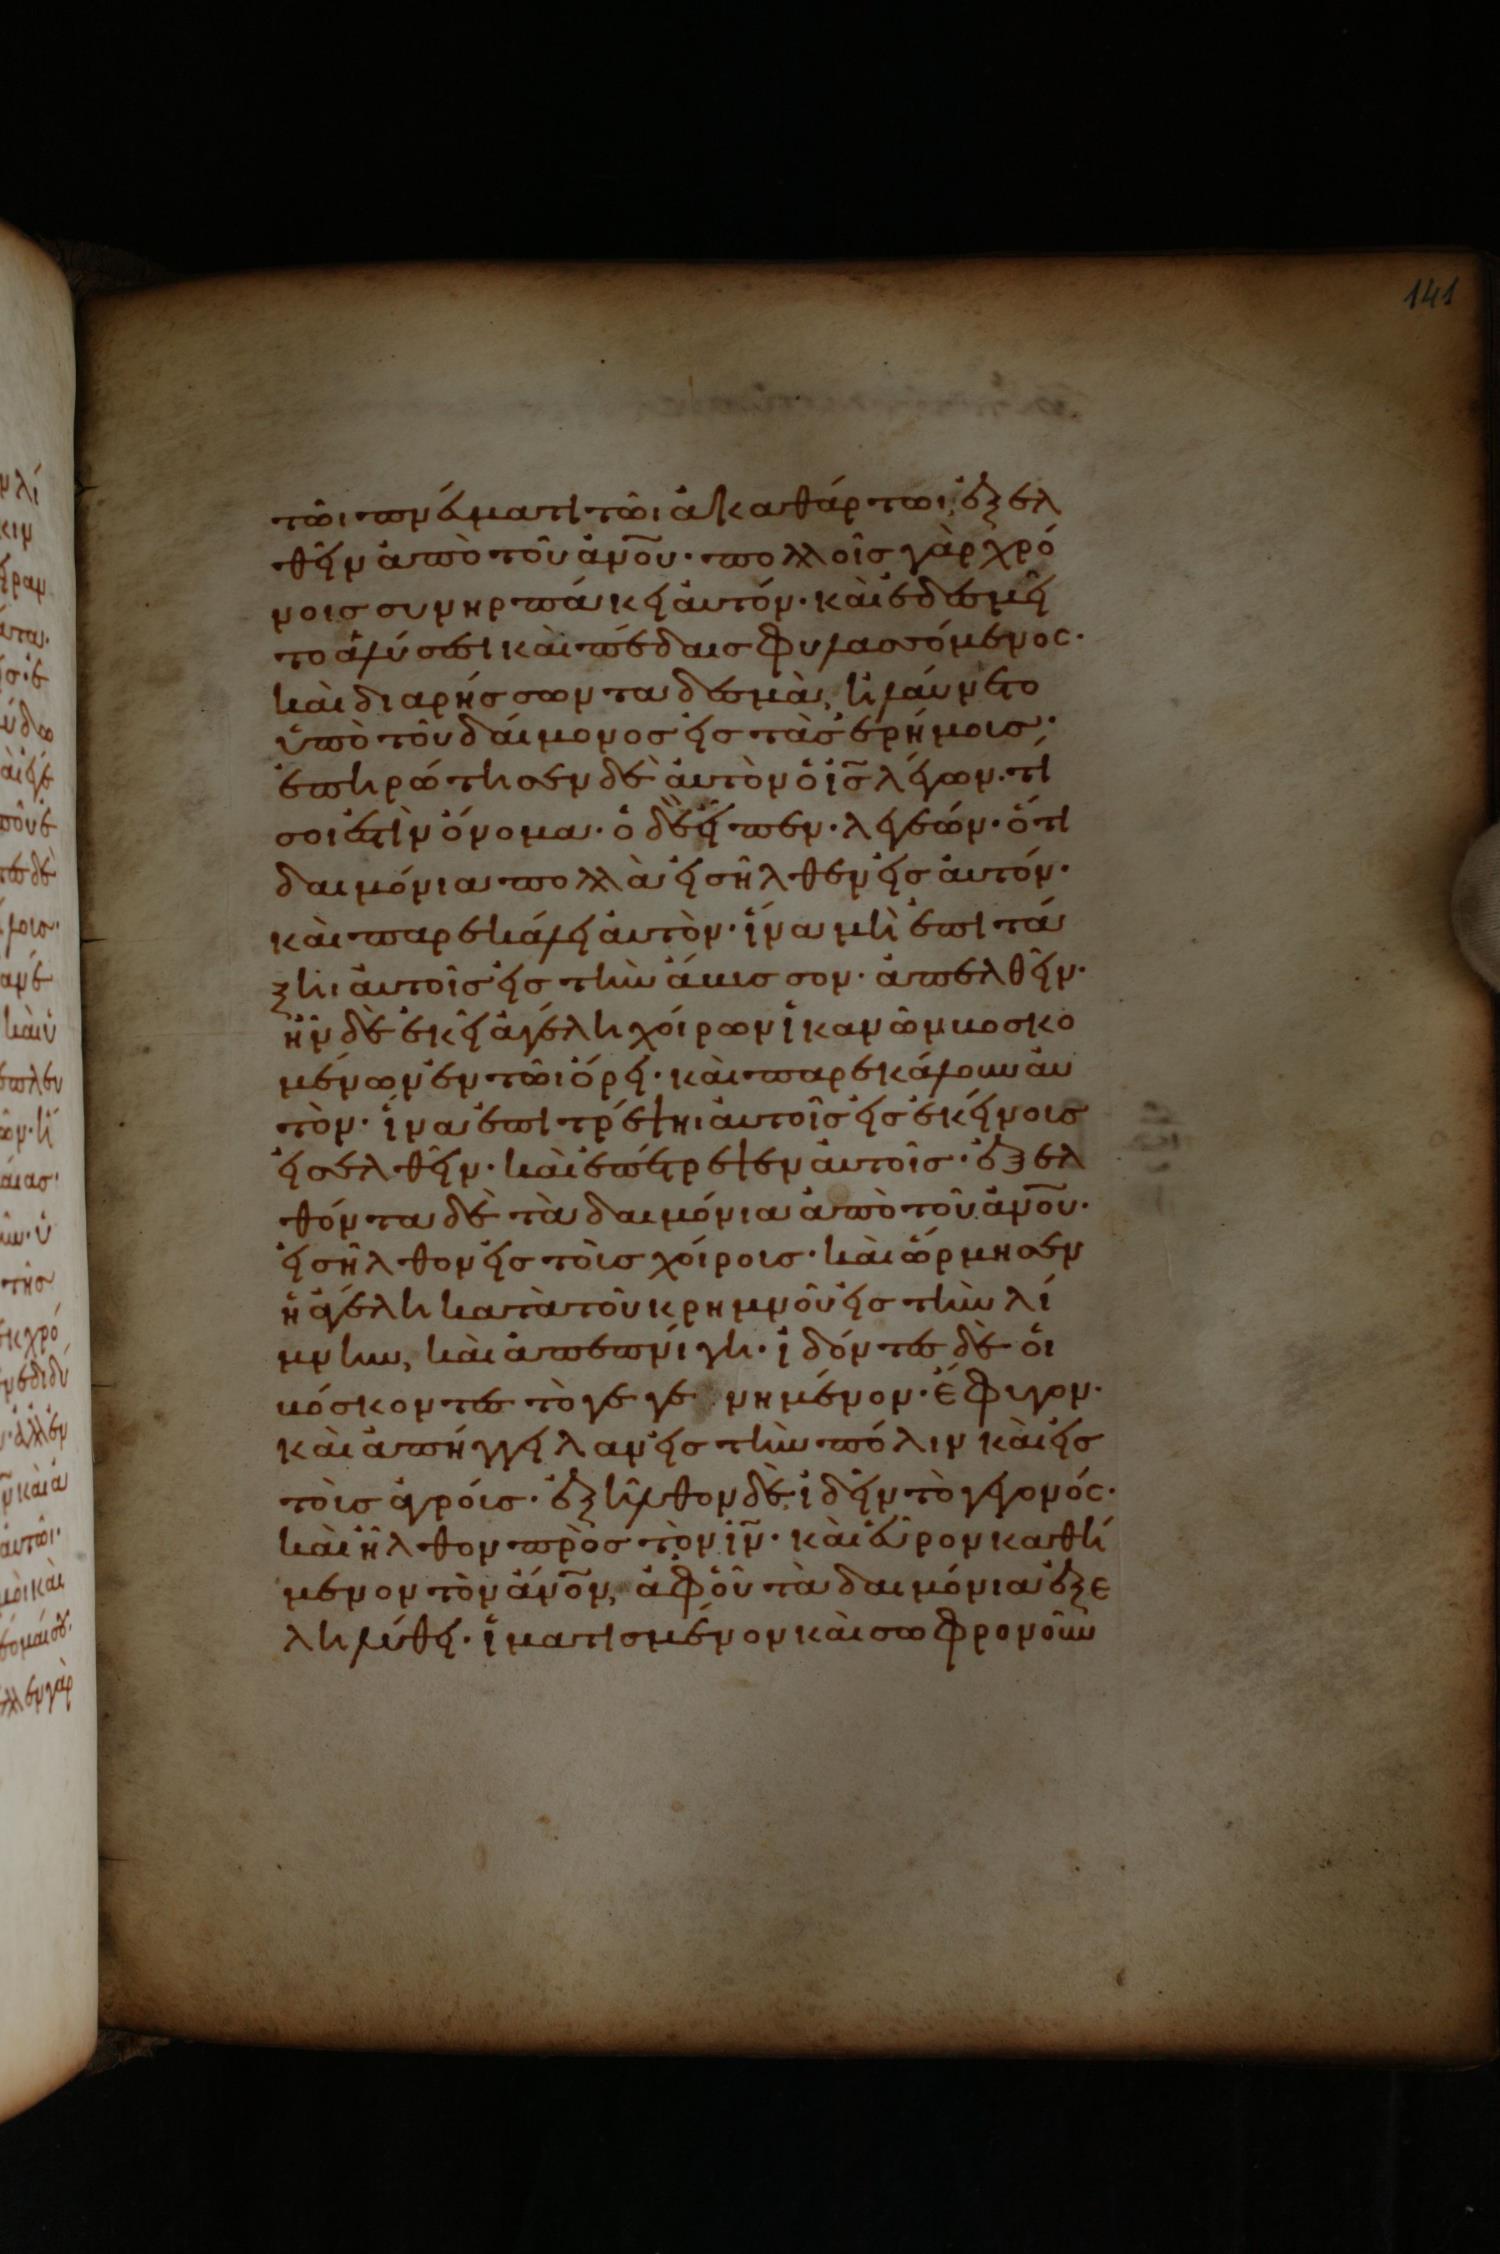 141
τῶι πνέματι τῶι ἀκαθάρτωι ἐξελ
θεῖν ἀπὸ τοῦ ἀνου· πολλοῖσ γὰρ χρό
νοισ συνηρπάκει ἀυτόν· κὰι ἐδεσμεῖ
το ἁλύσεσι κὰι πέδαισ φυλασσόμενος·
κὰι διαρήσσων τα δεσμὰ, ἠλάυνετο
ὑπὸ τοῦ δάιμονοσ εἰσ τὰσ ἐρήμοισ·
ἐπηρώτησεν δὲ ἀυτὸν ὁ ισ λέγων· τί
σοι ἐστὶν ὄνομα· ὁ δὲ εἶπεν· λεγεών· ὅτι
δαιμόνια πολλὰ εἰσῆλθεν εἰσ ἀυτόν·
κὰι παρεκάλει ἀυτὸν· ἵνα μὴ ἐπιτά
ξηι ἀυτοῖσ εἰσ τὴν ἄβισσον· ἀπελθεῖν·
ἦν δὲ ἐκεῖ ἀγέλη χόιρων ἱκανῶν βοσκο
μένων ἐν τῶι ὄρει· κὰι παρεκάλουν ἀυ
τὸν· ἵνα ἐπιτρέψηι ἀυτοῖσ εἰσ ἐκείνοισ
εἰσελθεῖν· κὰι ἐπέτρεψεν ἀυτοῖσ· ἐξελ
θόντα δὲ τὰ δαιμόνια ἀπὸ τοῦ ἀνου·
εἰσῆλθον εἰσ τὸισ χόιροισ· κὰι ὥρμησεν
ἡ ἀγέλη κατὰ τοῦ κρημνοῦ εἰσ τὴν λί
μνην, κὰι ἀπεπνίγη· ἰδόντεσ δὲ ὁι
βόσκοντεσ τὸ γεγενημένον· ἔφιγον·
κὰι ἀπήγγειλαν εἰσ τὴν πόλιν κὰι εἰσ
τὸισ ἀγρόισ· ἐξῆλθον δὲ ἰδεῖν τὸ γεγονός·
κὰι ἦλθον πρὸσ τὸν ιν· κὰι εὗρον καθή
μενον τὸν ἄνον, ἀφ' οὗ τὰ δαιμόνια ἐξε
ληλύθει· ἱματισμένον κὰι σωφρονοῦν